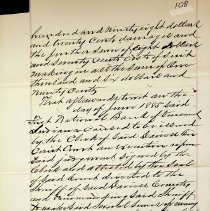 108
hundred and Ninety eight dollars
and twenty Cents damages and
the further sum of eight dollars
and seventy Cents costs of suit
making in all the sum of One
thousand and six dollars and
Ninety Cents
That afterwards to wit on the
day of June 1885 said
National Bank of
Indiana caused to be issued
by the Clerk of said
Court an execution upon
said judgment signed by the
Clerk and attested by the Seal
of said Court directed to the
Sheriff of said County
and commanding said Sheriff